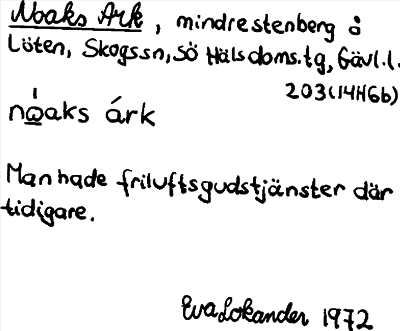 Noaks Ark, mindrestenberg å
Löten, Skogssn, sö Hälsdoms.tg, Gävl.l.
203(14H6b)
nωaks árk
Man hade friluftsgudstjänster där
tidigare.
Eva Lokander 1972